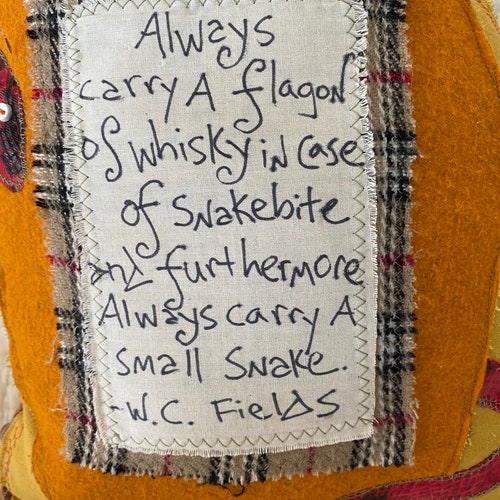 Always
carry A flagon
of whisky in case
of snakebite
and furthermore
Always carry A
small snake.
-W.C. Fields